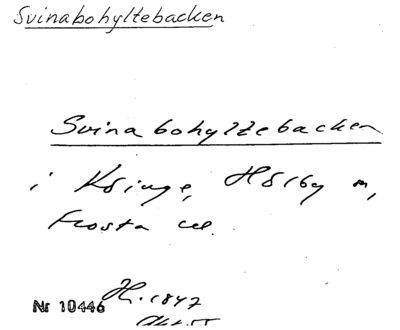 Svinabohyltebacken
Svinabohyltebacken
i Köinge, Hörby m,
Frosta
H. 1847
Nr 10446